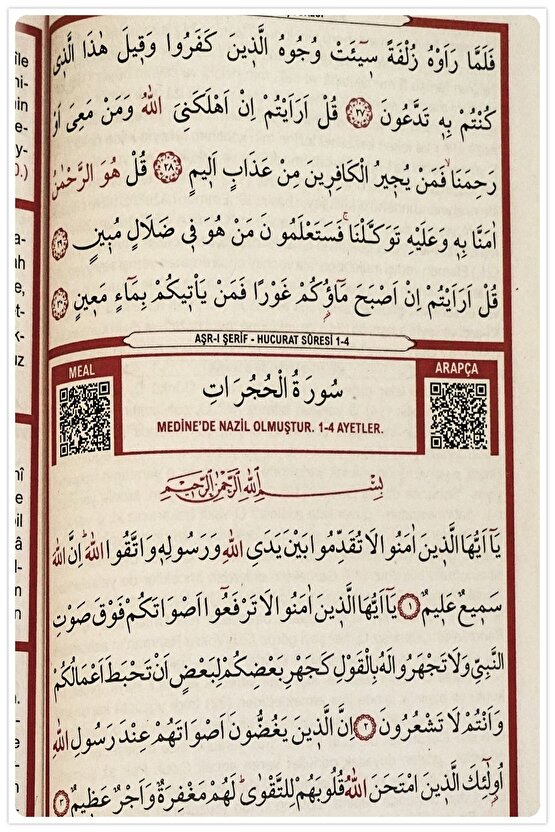 فَلَمَّا رَاَوْهُ زُلْفَةً سِيٓـَٔتْ وُجُوهُ الَّذِينَ كَفَرُوا وَقِيلَ هٰذَا الَّذِى
كُنْتُمْ بِهِ تَدَّعُونَ ﴿٢٧﴾ قُلْ اَرَاَيْتُمْ اِنْ اَهْلَكَنِىَ اللّٰهُ وَمَنْ مَعِىَ اَوْ
رَحِمَنَاۙ فَمَنْ يُجِيرُ الْكَافِرِينَ مِنْ عَذَابٍ اَلِيمٍ ﴿٢٨﴾ قُلْ هُوَ الرَّحْمٰنُ
اٰمَنَّا بِهِ وَعَلَيْهِ تَوَكَّلْنَاۚ فَسَتَعْلَمُونَ مَنْ هُوَ فِى ضَلَالٍ مُبِينٍ ﴿٢٩﴾
قُلْ اَرَاَيْتُمْ اِنْ اَصْبَحَ مَٓاؤُ۬كُمْ غَوْرًا فَمَنْ يَاْتِيكُمْ بِمَٓاءٍ مَعِينٍ ﴿٣٠﴾
AŞR-I ŞERİF - HUCURAT SÛRESİ 1-4
MEAL
ARAPÇA
سُورَةُ الْحُجُرَاتِ
MEDİNE'DE NAZİL OLMUŞTUR. 1-4 AYETLER.
بِسْمِ اللّٰهِ الرَّحْمٰنِ الرَّحِيمِ
يَٓا اَيُّهَا الَّذِينَ اٰمَنُوا لَا تُقَدِّمُوا بَيْنَ يَدَىِ اللّٰهِ وَرَسُولِهِ وَاتَّقُوا اللّٰهَۜ اِنَّ اللّٰهَ
سَمِيعٌ عَلِيمٌ ﴿١﴾ يَٓا اَيُّهَا الَّذِينَ اٰمَنُوا لَا تَرْفَعُٓوا اَصْوَاتَكُمْ فَوْقَ صَوْتِ
النَّبِىِّ وَلَا تَجْهَرُوا لَهُ بِالْقَوْلِ كَجَهْرِ بَعْضِكُمْ لِبَعْضٍ اَنْ تَحْبَطَ اَعْمَالُكُمْ
وَاَنْتُمْ لَا تَشْعُرُونَ ﴿٢﴾ اِنَّ الَّذِينَ يَغُضُّونَ اَصْوَاتَهُمْ عِنْدَ رَسُولِ اللّٰهِ
اُو۬لٰٓئِكَ الَّذِينَ امْتَحَنَ اللّٰهُ قُلُوبَهُمْ لِلتَّقْوٰىۜ لَهُمْ مَغْفِرَةٌ وَاَجْرٌ عَظِيمٌ ﴿٣﴾